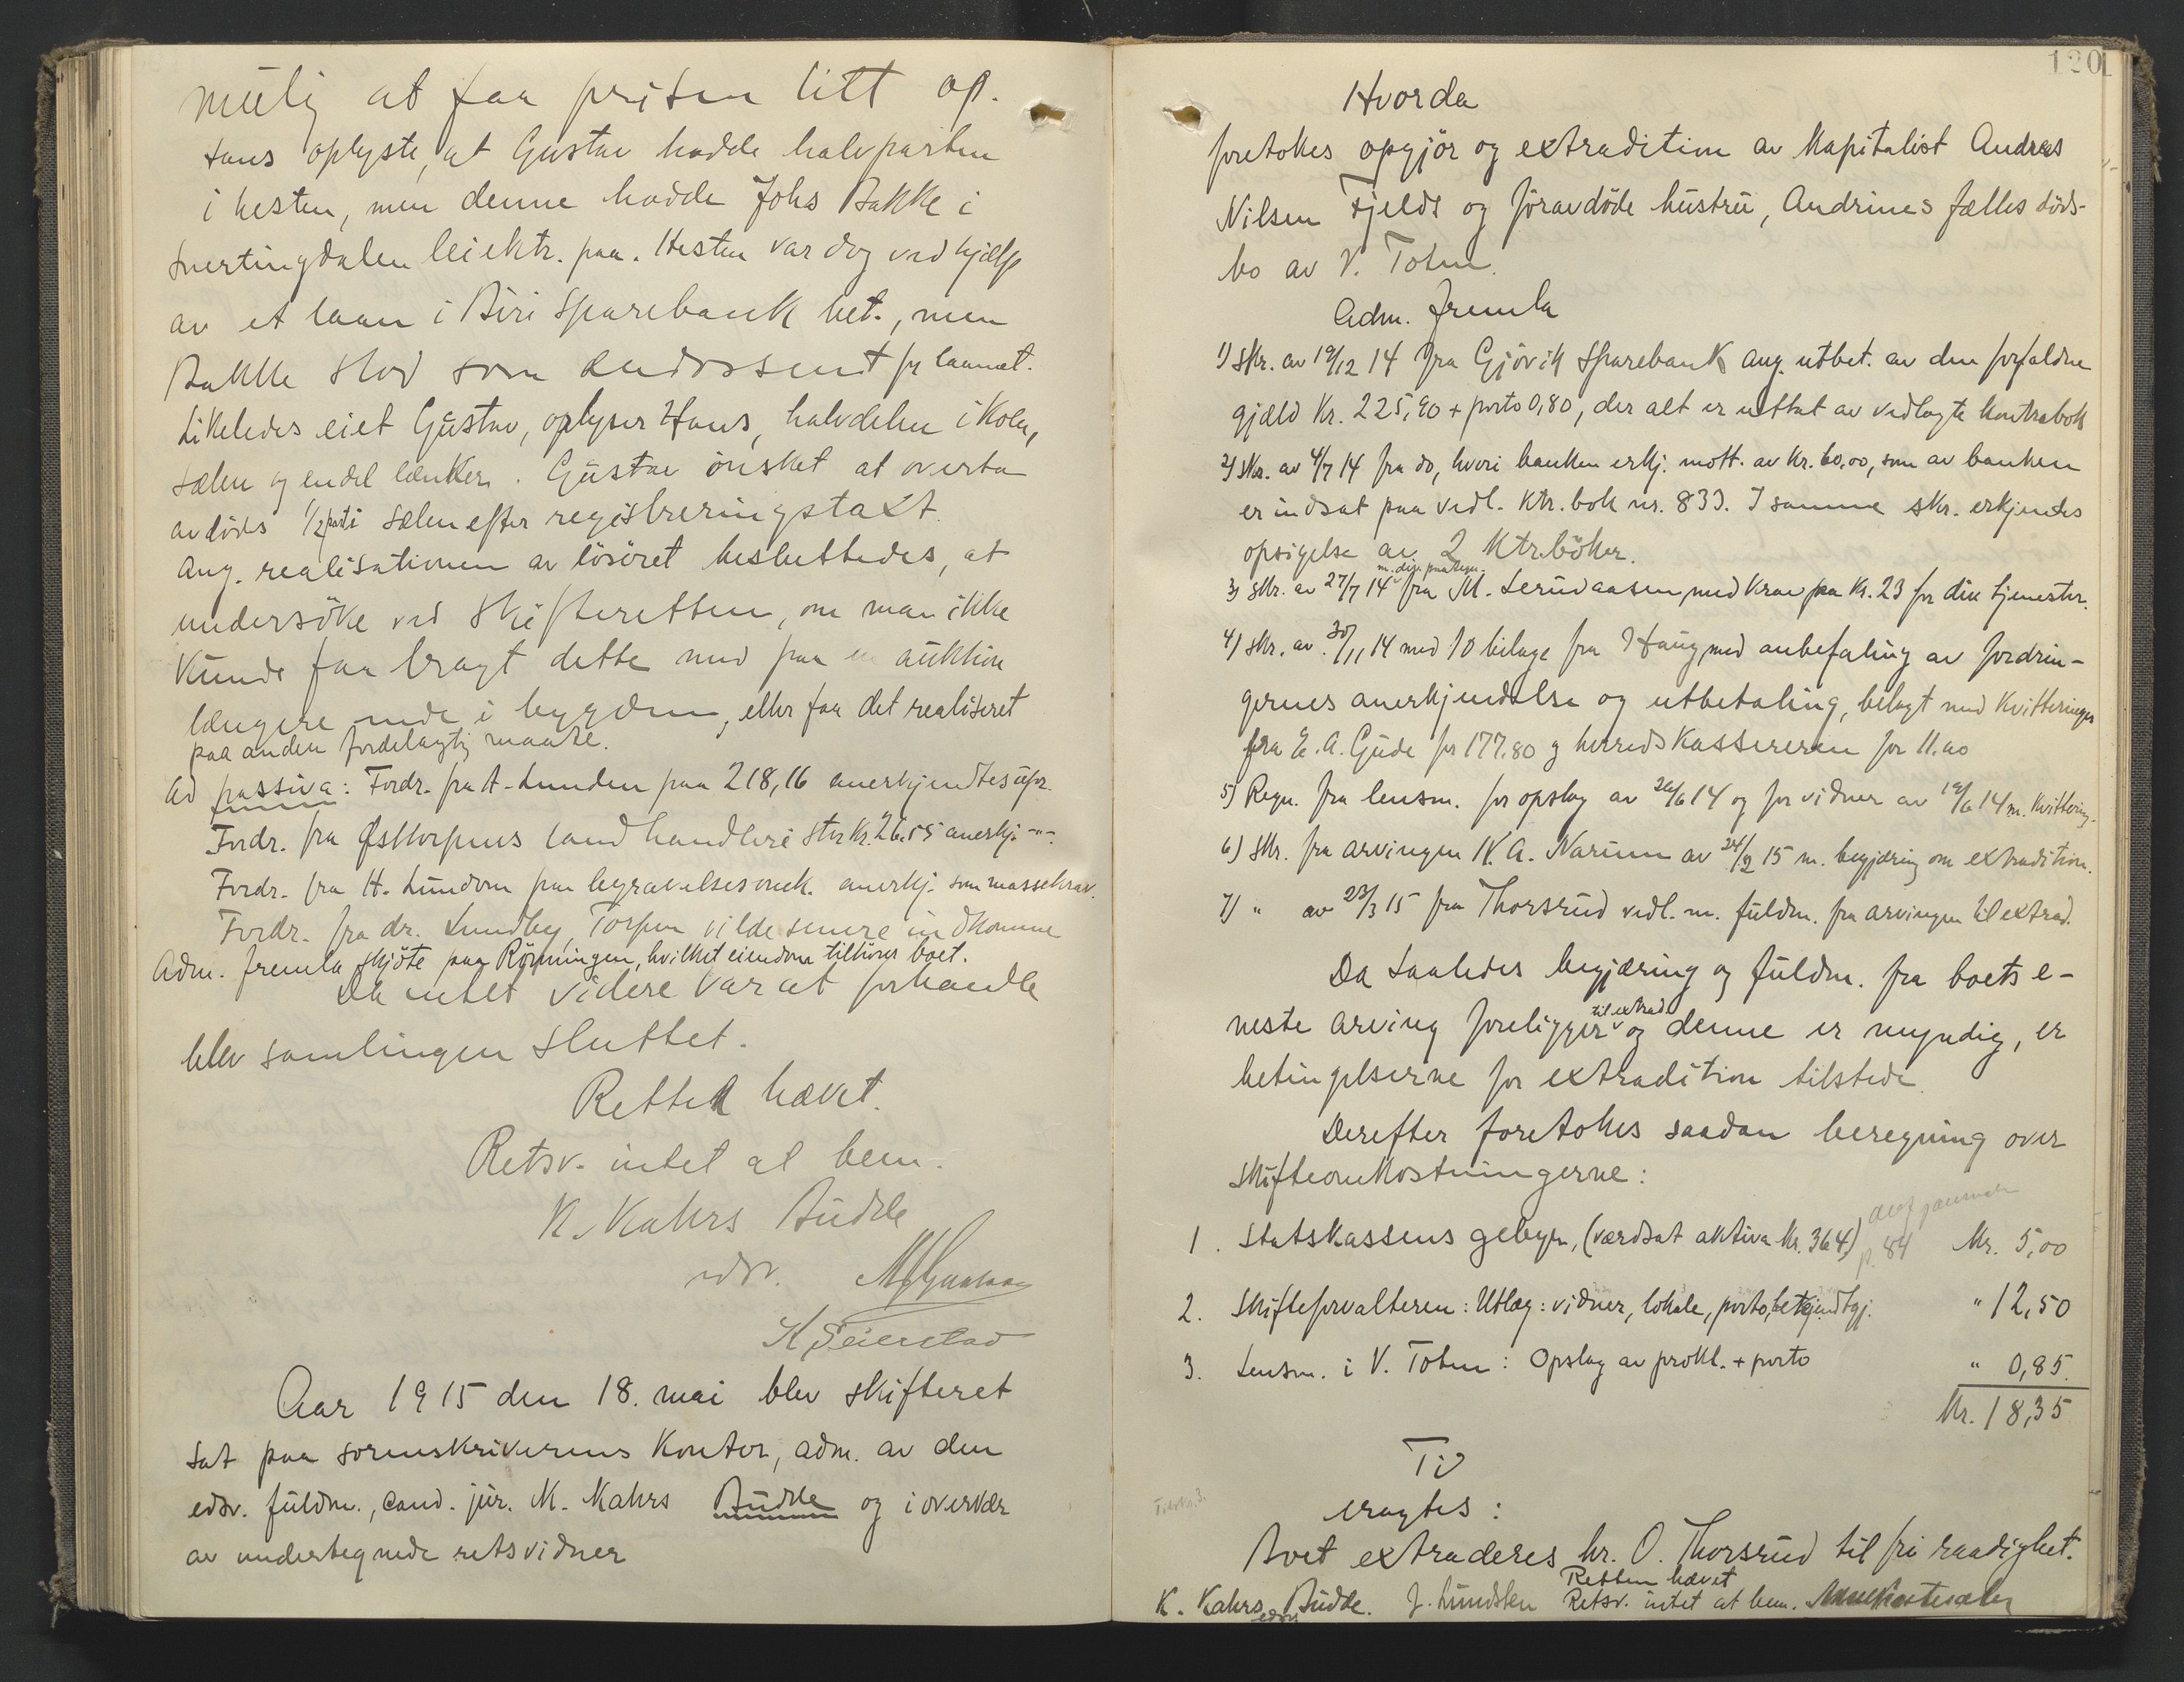 mulig at faa prisen litt op.
Hans oplyste, at Gustav hadde halvparten
i hesten, men denne hadde Johs Bakke i
Snertingdalen leiektr. paa. Hesten var dog ved hjælp
av et laan i Biri Sparebank bet., men
Bakke stod som endossent for laanet.
Likeledes eiet Gustav, oplyser Hans, halvdelen i Koen,
sælen og endel lænker. Gustav ønsket at overta
avdødes 1/2 part i sælen efter registreringstakst.
Ang. realisationen av løsøret besluttedes, at
undersøke ved Skifteretten, om man ikke
kunde faa bragt dette med paa en auktion
længere nede i bygden, eller faa det realiseret
paa anden fordelagtig maate.
Ad passiva: Fordr. fra A. Lunden paa 218,16 anerkjendtes
Fordr. fra Østtorpens landhandleri stor Kr. 26.55 anerkj. -"-.
Fordr. fra H. Lundom paa begravelsesomk. anerkj. som massekrav.
Fordr. fra dr. Lundby, Torpen vilde senere indkomme
Adm. fremla skjøte paa Rønningen, hvilket eiendom tilhører boet.
Da intet videre var at forhandle
blev samlingen sluttet.
Retten hævet.
Retsv. intet at bem.
K. Kahrs Budde
edsv.
K. Seierstad
Aar 1915 den 18. mai blev skifteret
sat paa sorenskriverens kontor, adm. av den
edsv. fuldm., cand. jur. K. Kahrs Budde og i overvær
av undertegnede retsvidner
120
Hvorda
foretokes opgjør og extradition av Kapitalist Andreas
Nilsen Fjelds og føravdøde hustru, Andrines fælles døds-
bo av V. Toten.
Adm. fremla
1) Skr. av 19/12 14 fra Gjøvik Sparebank ang. utbet. av den forfaldne
gjæld Kr. 225,90 + porto 0,80, der alt er uttat av vedlagte kontrabok
2) Skr. av 4/7 14 fra do, hvori banken erkj. mott. av Kr. 60,00, som av banken
er indsat paa vedl. ktr. bok nr. 833. I samme skr. erkjendes
opsigelse av 2 ktr.bøker.
3) Skr. av 27/7 14 fra M. Lerudaasen, med krav paa Kr. 23 for div tjenester.
4) Skr. av 30/11 14 med 10 bilage fra Haug, med anbefaling av fordrin-
gernes anerkjendelse og utbetaling, bilagt med kvitteringer
fra E. A. Gude for 177.80 og herredskassereren for 11.00
5) Regn. fra lensm. for opslag av 26/6 14 og for vidner av 19/6 14 m. kvittering.
6) Skr. fra arvingen K. A. Narum av 24/2 15 m. begjæring om extradition.
7) " av 23/3 15 fra Thorsrud vedl. m. fuldm. fra arvingen til extrad.
Da saaledes begjæring og fuldm. fra boets e-
neste arving foreligger til extrad. og denne er myndig, er
betingelserne for extradition tilstede.
Derefter foretokes saadan beregning over
skifteomkostningerne:
1. Statskassens gebyr, (værdsat aktiva Kr. 364) p. 84 Kr. 5,00
2. Skifteforvalteren: Utlæg: vidner, lokale, porto, bekjendtgj. " 12,50
3. Lensm. i V. Toten: Opslag av prokl. + porto " 0,85.
Kr. 18,35
Ti
eragtes:
Boet extraderes hr. O. Thorsrud til fri raadighet.
Retten hævet
K. Kahrs Budde. J. Lundsten Retsv. intet at bem.
edsv